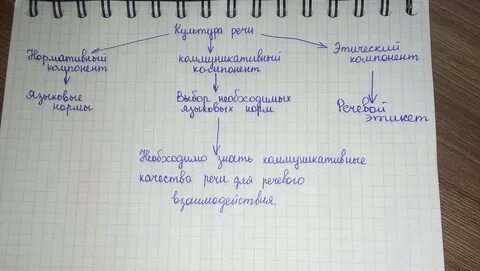 Культура речи
Нормативный
компонент
коммуникативный
компонент
Этический
компонент
Языковые
нормы
Выбор необходимых
языковых норм
Речевой
этикет
Необходимо знать коммуникативные
качества речи для речевого
взаимодействия.